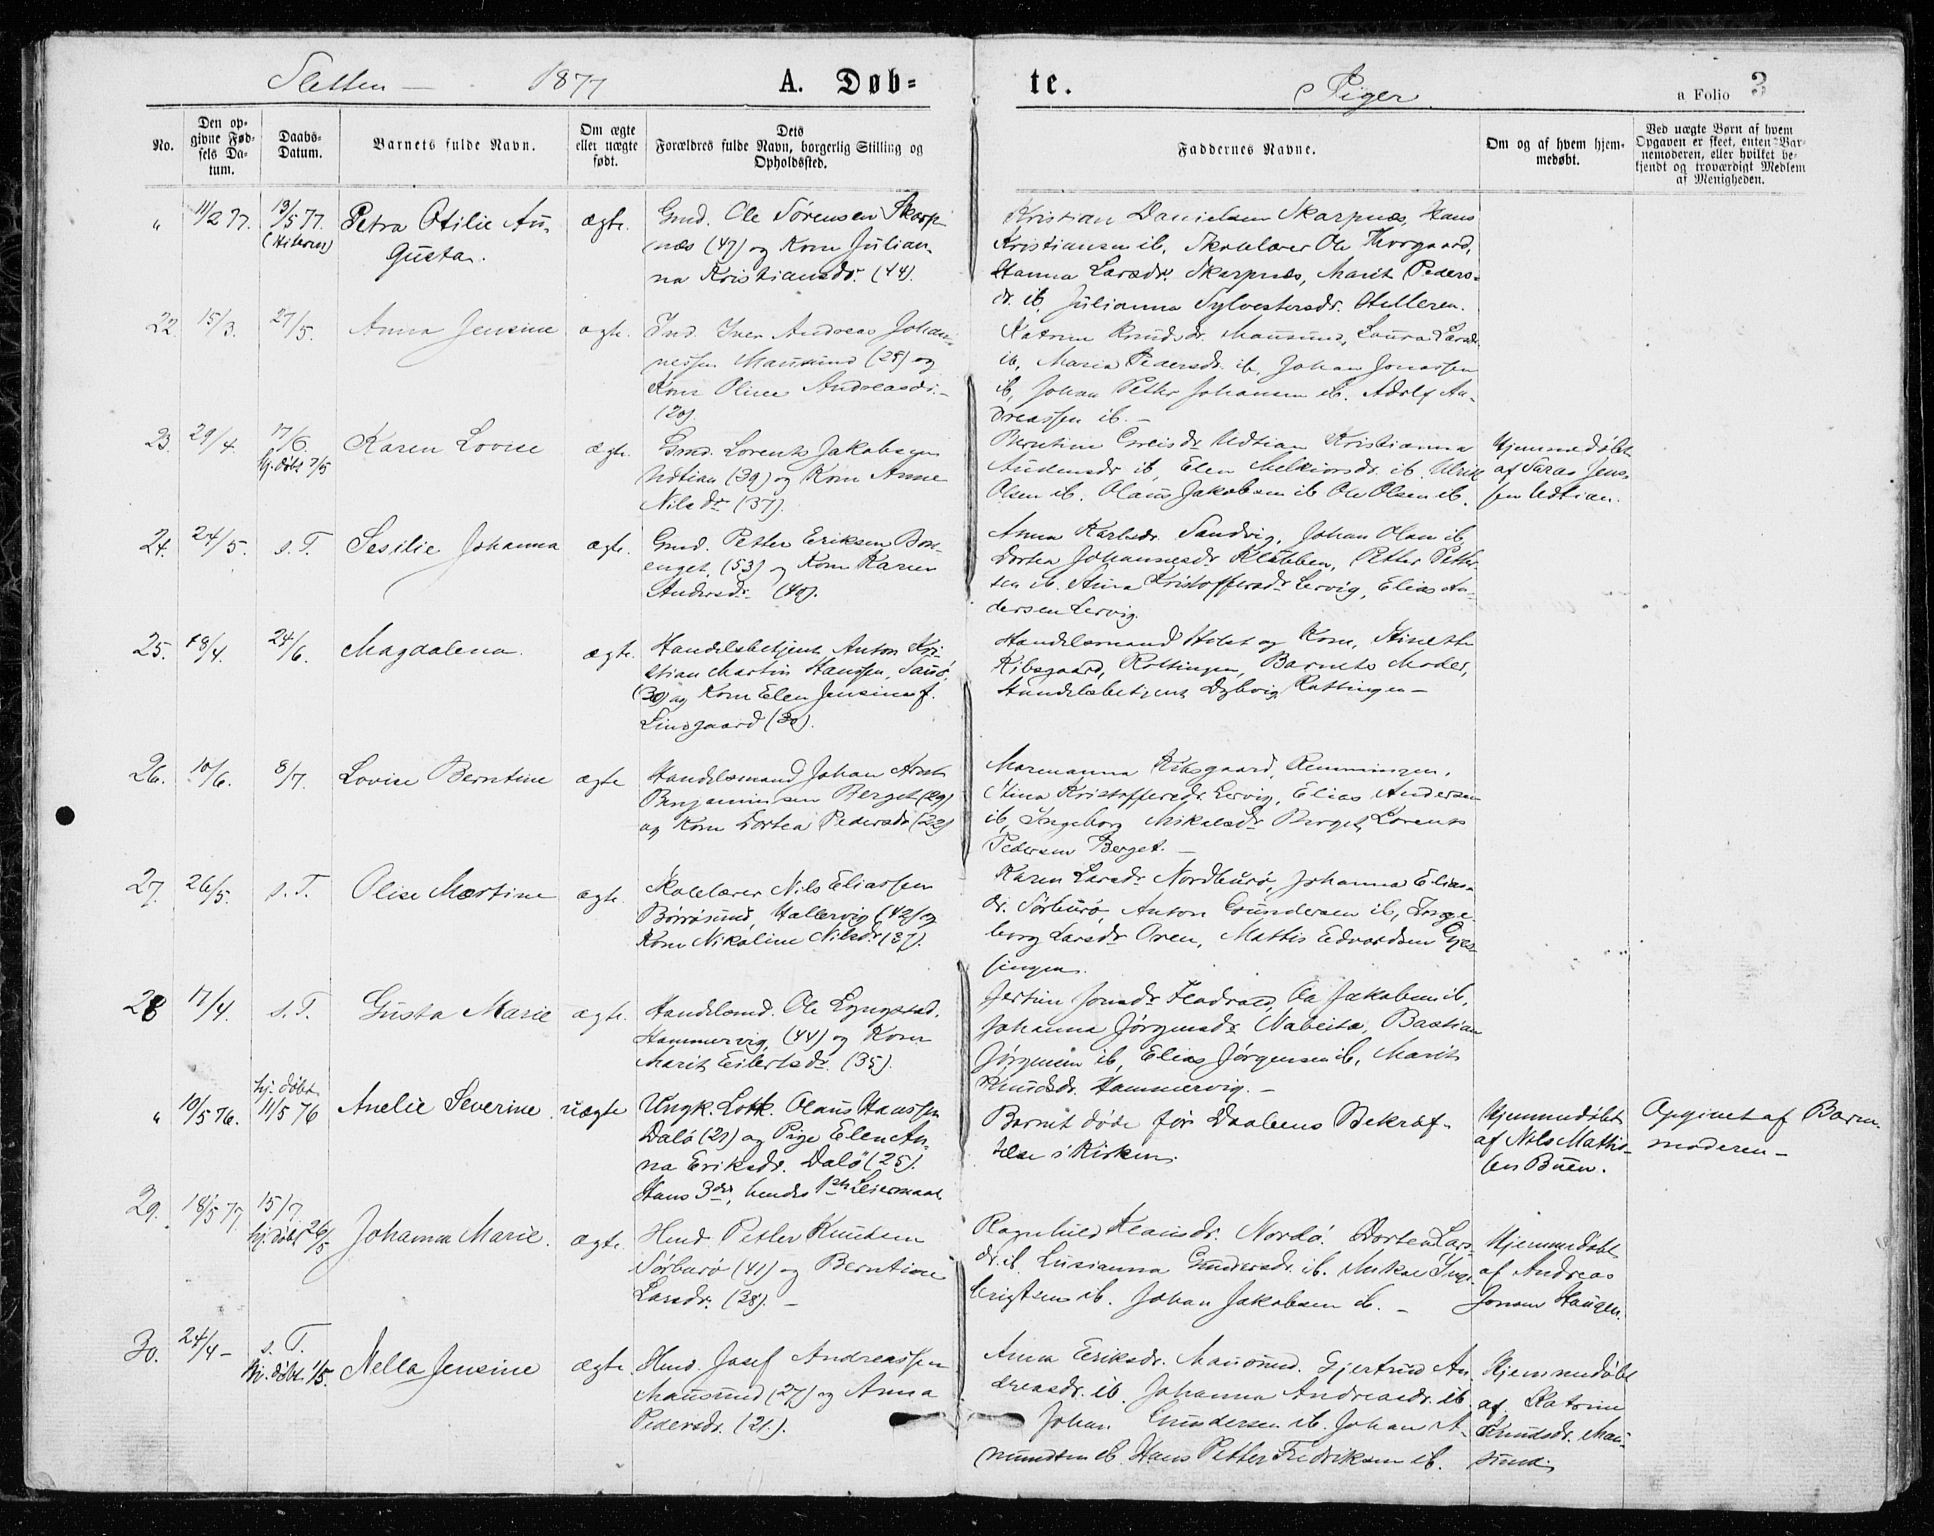 Sletten — 1877 A. Døb= te. Piger. a Folio 3
No.
Den op-
givne Fød-
sels Da-
tum.
Daabs-
Datum.
Barnets fulde Navn.
Om ægte
eller uægte
født.
Dets
Forældres fulde Navn, borgerlig Stilling og
Opholdssted.
Faddernes Navne.
Om og af hvem hjem-
medøbt.
Ved uægte Børn af hvem
Opgaven er skeet, enten Bar-
nemoderen, eller hvilket be-
kjendt og troværdigt Medlem
af Menigheden.
" 11/2 77. 13/5 77. (Hiteren)
Petra Otilie Au-
gusta.
ægte.
Gmd. Ole Sörensen Skarp-
næs (47) og Kone Julian-
na Kristiansdr. (44).
Kristian Danielsen Skarpnæs, Hans
Kristiansen ib, Skolelærer Ole Thorgaard,
Hanna Larsdr. Skarpnæs, Marit Peders-
dr. ib, Julianna Sylvestersdr. Helleren.
22 15/3. 27/5. Anna Jensine ægte.
Ind. Iver Andreas Johan-
nessen Mausund (28) og
Kone Oline Andreasdr.-
(20).
Katrine Knudsdr. Mausund, Laura Larsdr.
ib, Maria Pedersdr. ib, Johan Jonassen
ib, Johan Petter Johansen ib. Adolf An-
dreassen ib. -
23. 29/4. 17/6. hj. døbt 7/5 Karen Lovise ægte.
Gmd. Lorents Jakobsen
Udtian (39) og Kone Anne
Nilsdr (37).
Berntine dr Udtian Kristianna
Andersdr ib, Elen Melkiorsdr. ib. Ulrik
Olsen ib. Olaus Jakobsen ib Ole Olsen ib.
Hjemmedøbt
af Jens-
sen Udtian.
24. 24/5. s. T. Sesilie Johanna ægte.
Gmd. Petter Eriksen Bon-
enget (53) og Kone Karen
Andersdr. (40).
Anna Karlsdr. Sandvig, Johan Olsen ib,
Dortea Johannesdr Klubben, Petter Petter-
sen ib. Anna Kristoffersdr Lervig, Elias An-
dersen Lervig.
25. 18/4. 24/6. Magdalena. ægte.
Handelsbetjent Anton Kri-
stian Martin Hanssen, Sauø,
(30) og Kone Elen Jensine f.
Lindgaard (30).
Handelsmand Holst og Kone, Stinette
Kibsgaard, Rottingen, Barnets Moder,
Handelsbetjent Dybvig Rottingen —
26. 10/6. 8/7. Lovise Berntine ægte
Handelsmand Johan Arnt
Benjaminsen Berget (29)
og Kone Dortea Pedersdr (22)
Marianna Kibsgaard,
Anna Kristoffersdr Lervig, Elias Andersen
ib, Ingeborg Mikalsdr Berget, Lorents
Pedersen Berget. —
27. 26/5. s. T. Olise Martine ægte.
Skolelærer Nils Eliassen
Börrösund, Hallervig (42) og
Kone Nikoline Nilsdr. (37).
Karen Larsdr Nordburö, Johanna Elias-
dr. Sörburö, Anton Gundersen ib, Inge-
borg Larsdr Oren, Mattis Edvardsen Gjes-
singen.
28 17/4. s. T. Gusta Marie ægte.
Handelsmd. Ole Lyngstad,
Hammervig, (44) og Kone
Marit Eilertsdr. (35).
Jertine Jonsdr Fladvad, Ole Jakobsen ib,
Johanna Jörgensdr Nabeita, Bastian
Jörgensen ib, Elias Jörgensen ib, Marit
Knudsdr. Hammervig. -
" 10/5 76. hj. døbt 11/5 76 Anelie Severine. uægte
Ungk. Lotk. Olaus Hanssen
Dalö (21) og Pige Elen An-
na Eriksdr. Dalö (25).
Hans 3die, hendes 1ste Leiermaal
Barnet døde før Daabens Bekræf-
telse i Kirken.
Hjemmedøbt
af Nils Mathis-
sen Buen.
Opgivet af Barne-
moderen -
29. 18/5 77. 15/7. hj. døbt 26/5 Johanna Marie. ægte.
Hmd. Petter Knutsen
Sörburö (41) og Berntine
Larsdr. (38). -
Ragnhild Klausdr. Nordö. Dortea Lars-
dr. ib. Lusianna Gundersdr. ib. Mikal Ing-
brigtsen ib. Johan Jakobsen ib. -
Hjemmedøbt
af Andreas
Jonsen Haugen.
30. 24/4 - s. T. hj. døbt 1/5. Nella Jensine ægte.
Hmd. Josef Andreassen
Mausund (27) og Anna
Pedersdr. (21.).
Anna Eriksdr. Mausund. Gjertrud An-
dreasdr. ib. Johanna Andreasdr. ib.
Johan Gundersen ib. Johan A-
mundsen ib. Hans Petter Fredriksen ib.
Hjemmedøbt
af Katrine
Knudsdr. Mau-
sund.